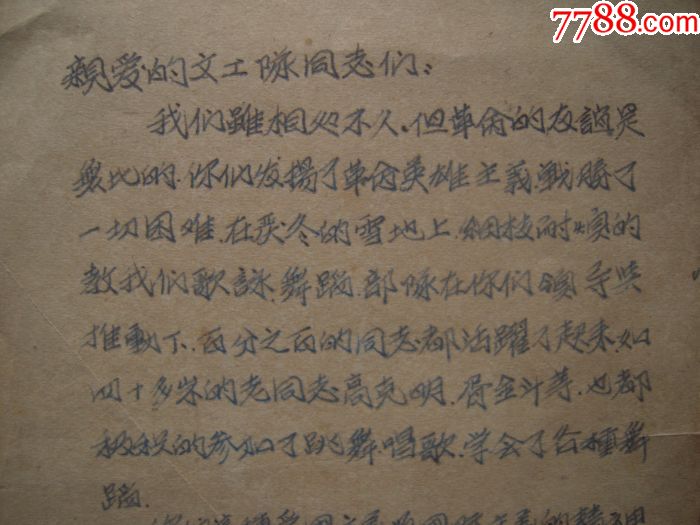 7788.com
亲爱的文工隊同志们：
我们雖相处不久、但革命的友誼是
無比的.你们发揚了革命英雄主義.戰勝了
一切困难.在严冬的雪地上.細枝耐煩的
教我们歌詠.舞蹈.部隊在你们領导与
推動下.百分之百的同志都活躍了起来.如
四十多岁的老同志高克明.骨金斗等.也都
极积的参加了跳舞.唱歌.学会了各種舞
蹈.